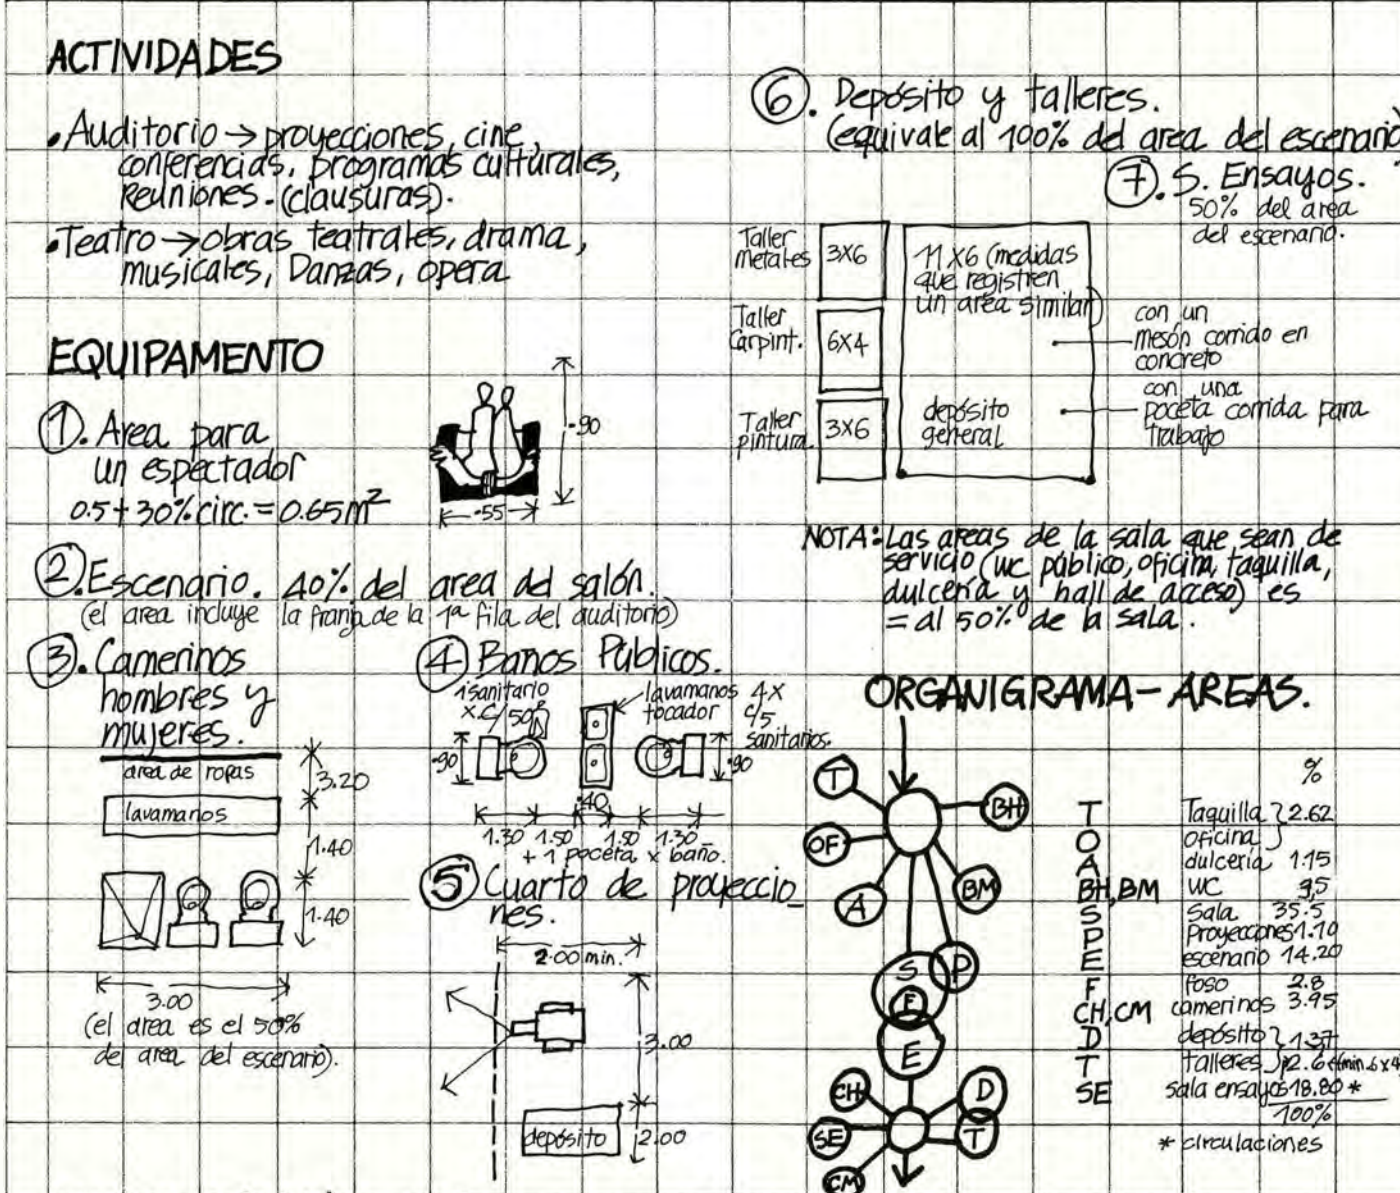 ACTIVIDADES
• Auditorio → proyecciones, cine,
conferencias, programas culturales,
Reuniones. (clausuras).
• Teatro → obras teatrales, drama,
musicales, Danzas, opera
EQUIPAMENTO
1. Area para
un espectador
0.5 + 30% circ. = 0.65 m²
.90
.55
2. Escenario. 40% del area del salón.
(el area incluye la franja de la 1ª fila del auditorio)
3. Camerinos
hombres y
mujeres.
area de ropas
lavamanos
3.20
1.40
1.40
3.00
(el area es el 50%
de area del escenario).
4 Baños Públicos.
1 sanitario
x c/50
lavamanos 4x
tocador c/5
sanitarios.
.90
.90
.40
1.30 1.50 1.50 1.30
+ 1 poceta x baño.
5 Cuarto de proyeccio_
nes.
2.00 min.
3.00
depósito
2.00
6. Depósito y talleres.
(equivale al 100% del area del escenario)
7. S. Ensayos.
50% del area
del escenario.
Taller
metales
3X6
Taller
Carpint.
6X4
Taller
pintura.
3X6
11 X6 (medidas
que registren
un area similar)
depósito
general
con un
mesón corrido en
concreto
con una
poceta corrida para
trabajo
NOTA: Las areas de la sala que sean de
servicio (wc público, oficina, taquilla,
dulceria y hall de acceso) es
= al 50% de la sala.
ORGANIGRAMA - AREAS.
T
BH
OF
A
BM
S
P
F
E
CH
D
SE
T
CM
%
T Taquilla } 2.62
O oficina }
A dulceria 1.15
BH,BM WC
S Sala 35.5
P Proyecciones 1.10
E escenario 14.20
F foso 2.8
CH,CM camerinos 3.95
D depósito }
T talleres }
SE sala ensayos 18.80 *
100%
* circulaciones